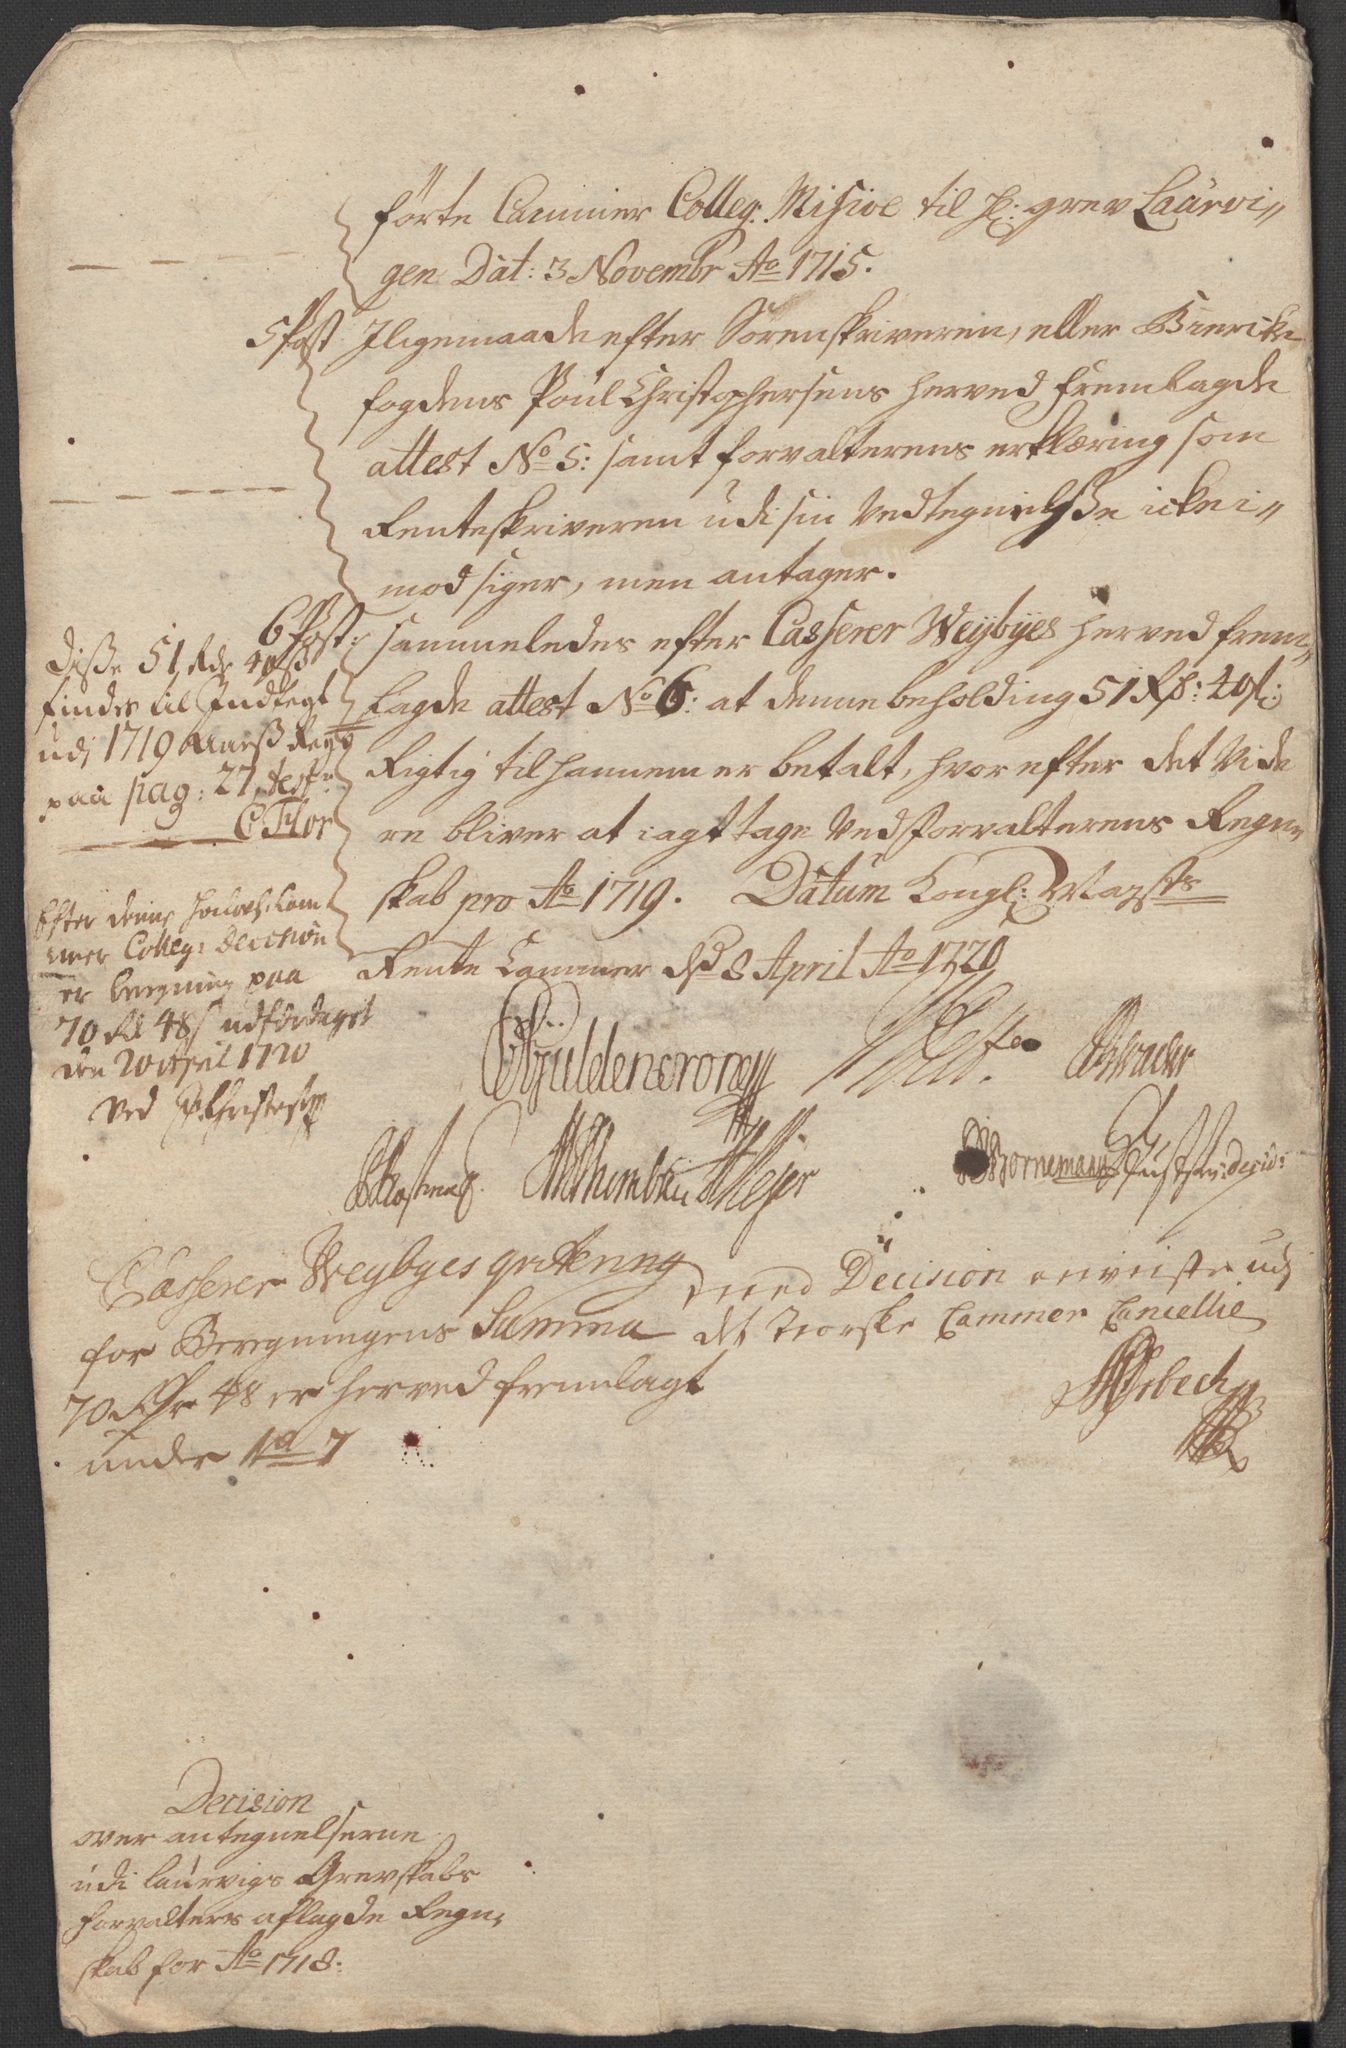 förte Cammer Colleg. Misive til H: grev Laurvi„
gen Dat: 3 Novembr Ao 1715.
5 Post Iligemaade efter Sorenskriveren, eller Bierke
fogdens Poul Christophersens herved fremlagde
attest No 5: samt forvalterens erklæring som
Renteskriveren udi sin Vedtegnelsse icke i„
mod siger, men antager.
6 Post: sammeledes efter Casserer Weybyes herved frem„
lagde attest No 6: at denne beholding 51 Rd: 40 s:
Rigtig til hannem er betalt, hvor efter det Vide
re bliver at iagttage Ved forvalterens Regn„
skab pro Ao 1719. Datum Kongl: Maysts
Rente Cammer d 8 April Ao 1720
Disse 51 Rdr 40 s
findes til Indtegt
udi 1719 Aars Regn
paa pag: 27, test:
C Flor
Efter denne høilovl: Cam
mer Colleg: Decision
er beregning paa
70 Rd 48 s udfærdiget
den 20 April 1720
Ved
Güldencrone
Bornemann
Casserer Weybyes qvittering
for Beregningens Summa
70 Rdr 48 er herved fremlagt
under No 7
med Decision anviiste udj
det Norske Cammer Cancellie
Decision
over antegnelserne
udi Laurvigs Grevskabs
forvalters aflagde Regn„
skab for Ao 1718: